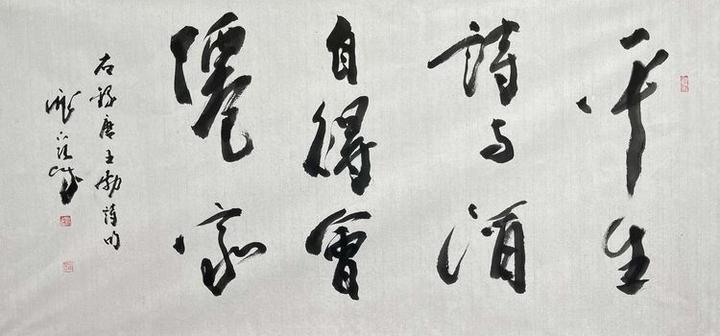 平生
詩与酒
自得會
僊家
右錄唐王勃詩句